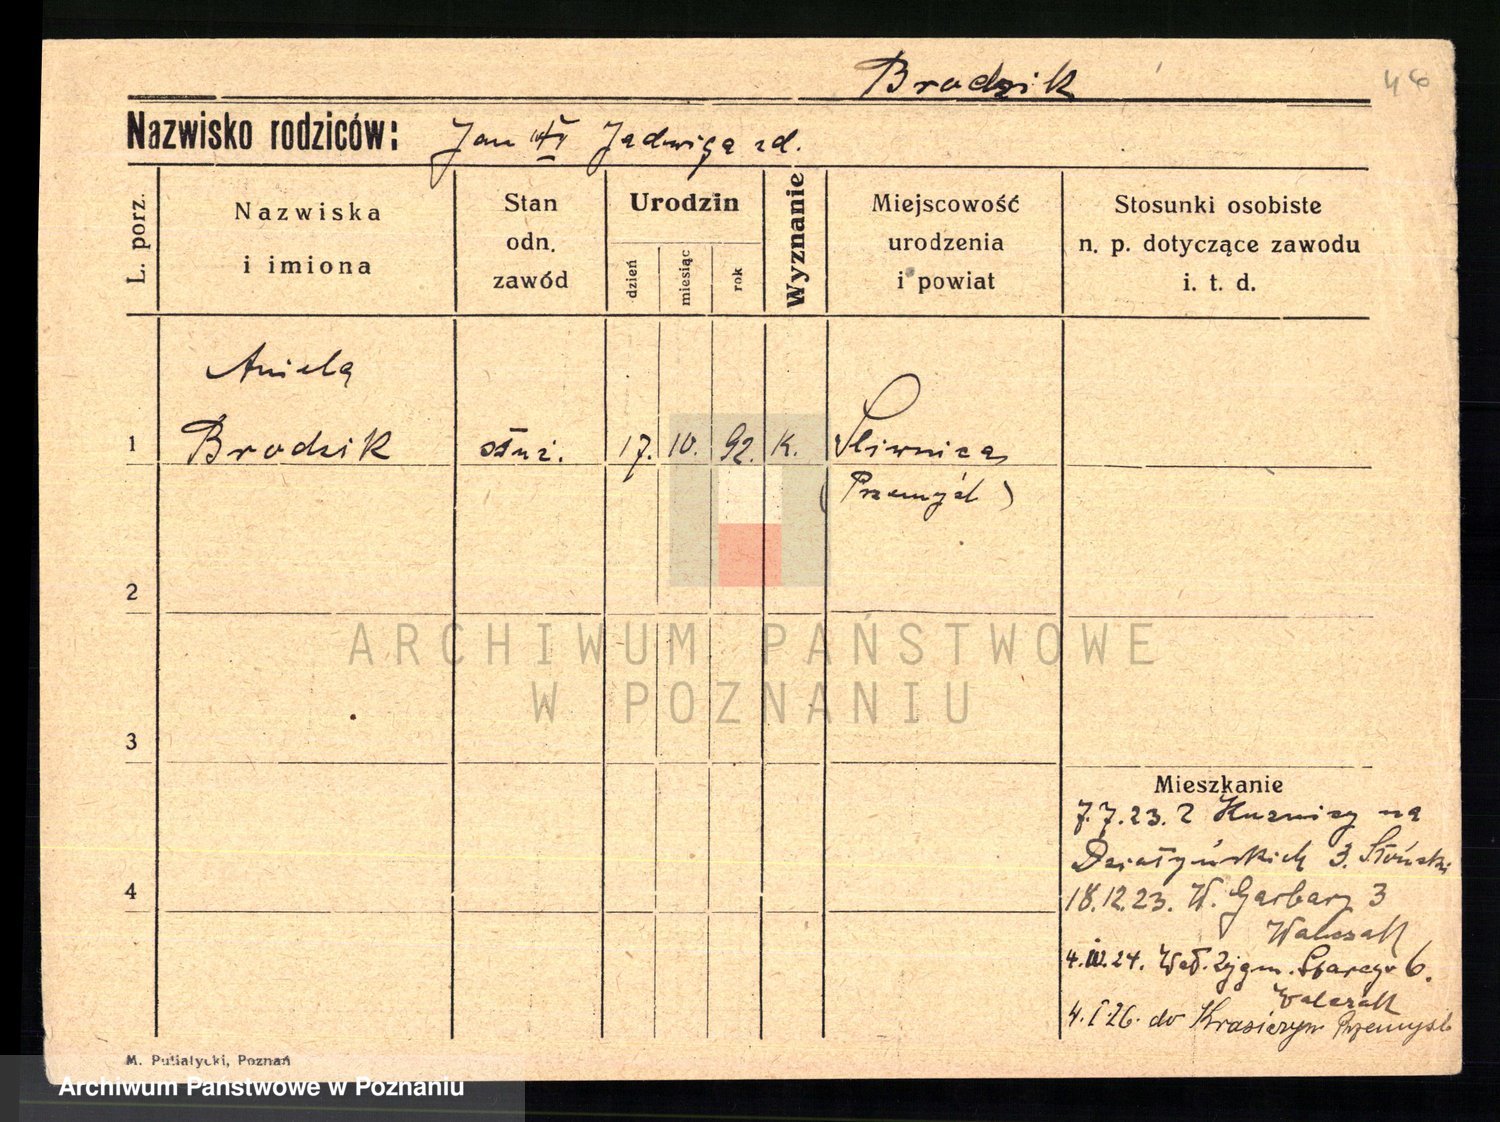 Brodzik
46
Nazwisko rodziców: Jan Jadwiga zd.
L. porz.
Nazwiska
i imiona
Stan
odn.
zawód
Urodzin
dzień
miesiąc
rok
Wyznanie
Miejscowość
urodzenia
i powiat
Stosunki osobiste
n. p. dotyczące zawodu
i. t. d.
Aniela
1 Brodzik służ. 17. 10. 92. K. Śliwnica
(Przemyśl)
2
ARCHIWUM PAŃSTWOWE
W POZNANIU
3
Mieszkanie
7.7.23. z Kuźnicy na
Działyńskich 3. Słoński
4
18.12.23. W. Garbary 3
Walczak
4.IV.24. Zygm. Starego 6.
Walczak
4.I.26. do Krasiczyn Przemyśl
M. Putiatycki, Poznań
Archiwum Państwowe w Poznaniu